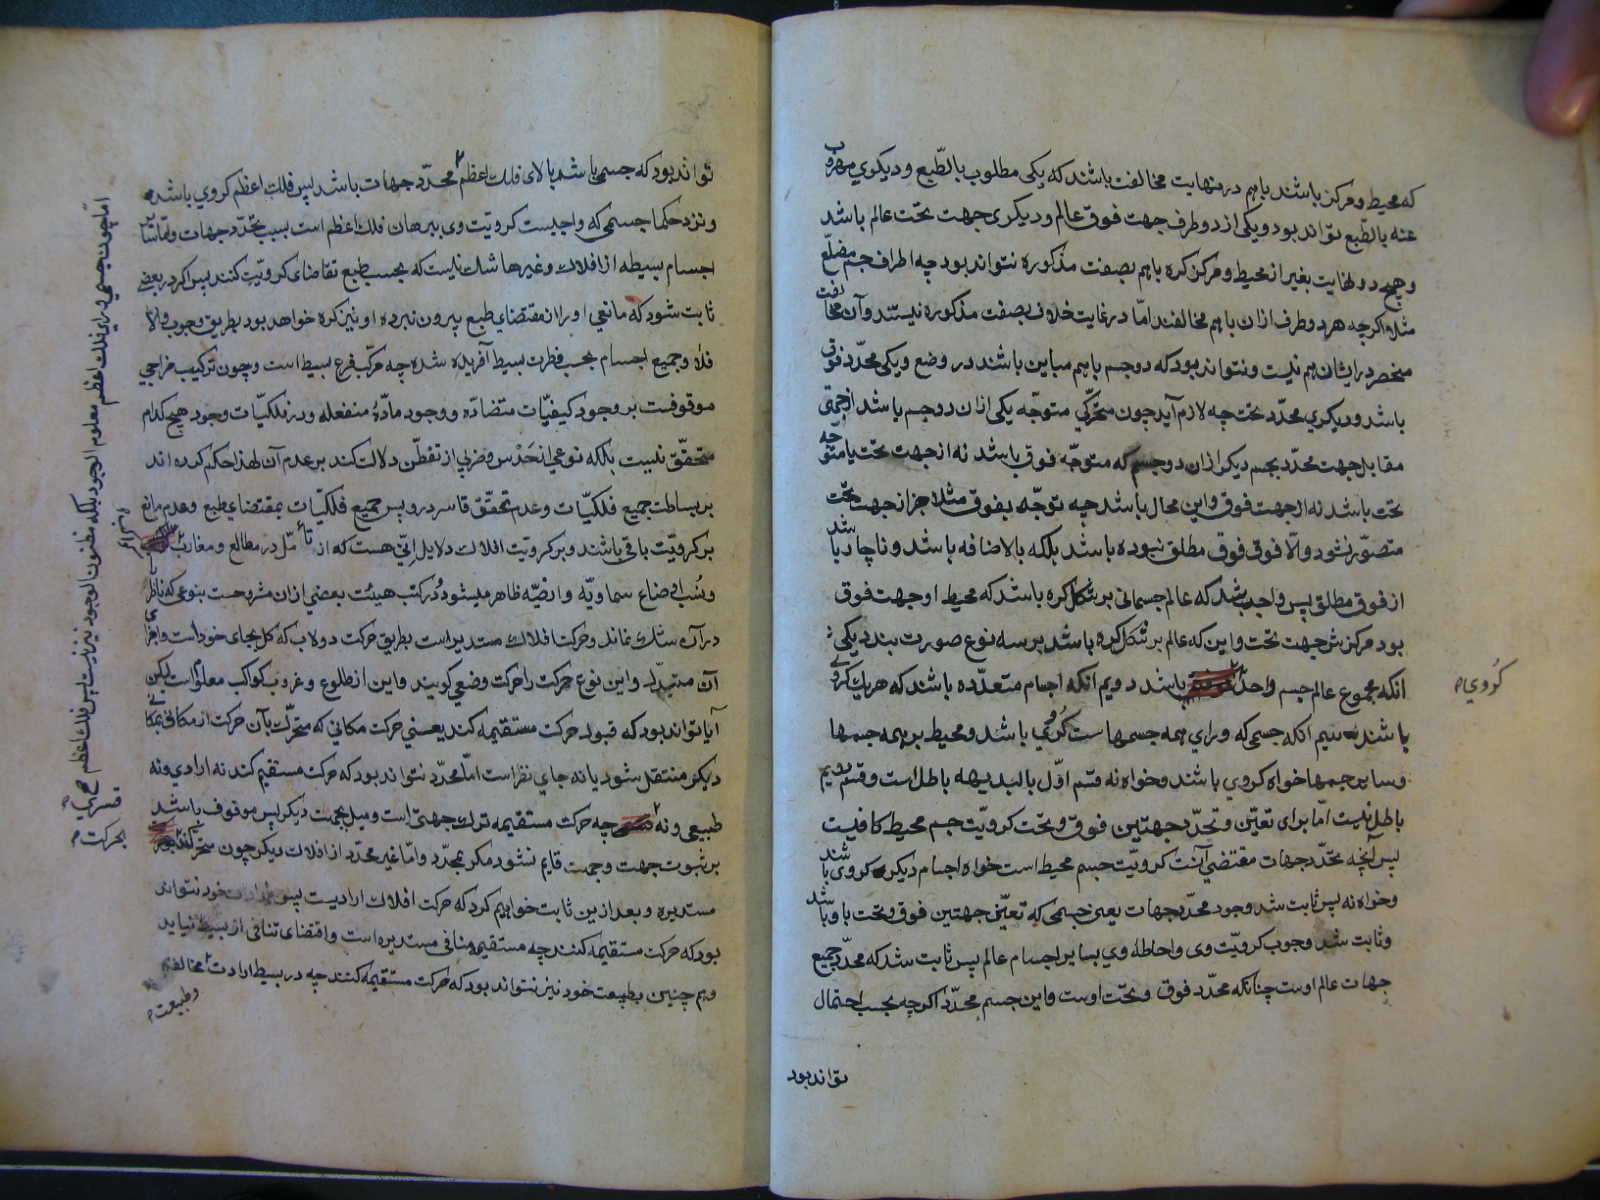 که محیط و مرکز باشند باهم در نهایت مخالفت باشند که یکی مطلوب بالطّبع و دیکری مهروب
عنه بالطّبع تواند بود و یکی از دو طرف جهت فوق عالم و دیکری جهت تحت عالم باشد
و هیچ دو نهایت بغیر از محیط و مرکز کره باهم بصفت مذکوره نتواند بود چه اطراف جسم مضلّع
مثلا اکرچه هر دو طرف ازان باهم مخالفند امّا در غایت خلاف بصفت مذکوره نیستند و آن مخالفت
منحصر در ایشان هم نیست و نتواند بود که دو جسم باهم مباین باشند در وضع و یکی محدّد فوق
باشد و دیکری محدّد تحت چه لازم آید چون متحرّکی متوجّه یکی ازان دو جسم باشد از جهتی
مقابل جهت محدّد بجسم دیکر ازان دو جسم که متوجّه فوق باشد نه از جهت تحت یا متوجّه
تحت باشد نه از جهت فوق و این محال باشد چه توجّه بفوق مثلا جز از جهت تحت
متصوّر نشود و الّا فوق فوق مطلق نبوده باشد بلکه بالاضافه باشد و ناچار باشد
از فوق مطلق پس واجب شد که عالم جسمانی بر شکل کره باشد که محیط او جهت فوق
بود مرکزش جهت تحت و این که عالم بر شکل کره باشد بر سه نوع صورت بندد یکی
انکه مجموع عالم جسم واحد باشد دویم آنکه اجسام متعدّده باشند که هر یک کروی
باشند سیم انکه جسمی که ورای همه جسمهاست کُروی باشد و محیط بر همه جسمها
و سایر جسمها خواه کروی باشند و خواه نه قسم اوّل بالبدیهه باطل است و قسم دویم
باطل نیست امّا برای تعیّن و تحدّد جهتین فوق و تحت کرویّت جسم محیط کافیست
پس آنچه تحدّد جهات مقتضی آنست کرویّت جسم محیط است خواه اجسام دیکر کروی باشد
و خواه نه پس ثابت شد وجود محدّد جهات یعنی جسمی که تعیّن جهتین فوق و تحت باو باشد
و ثابت شد وجوب کرویّت وی و احاطهٔ وی بسایر اجسام عالم پس ثابت شد که محدّد جمیع
جهات عالم اوست چنانکه محدّد فوق و تحت اوست و این جسم محدّد اکرچه بحسب احتمال
تواند بود
کُروی
تواند بود که جسمی باشد بالای فلک اعظم محدّد جهات باشد پس فلک اعظم کروی باشد
و نزد حکما جسمی که واجبست کرویّت وی ببرهان فلک اعظم است بسبب تحدّد جهات و امّا سایر
اجسام بسیطه از افلاک و غیرها شک نیست که بحسب طبع تقاضای کرویّت کنند پس اکر در بعضی
ثابت شود که مانعی او را از مقتضای طبع بیرون نبرده او نیز کره خواهد بود بطریق وجوب و الّا
فلا و جمیع اجسام بحسب فطرت بسیط آفریده شده چه مرکّب فرع بسیط است و چون ترکیب مزاجی
موقوفست بر وجود کیفیّات متضادّه و وجود مادّهٔ منفعله و در فلکیّات وجود هیچ کدام
متحقّق نیست بلکه نوعی از حَدْس و ضربی از تفطّن دلالت کند بر عدم آن لهذا حکم کرده اند
بر بساطت جمیع فلکیّات و عدم تحقّق قاسر درو پس جمیع فلکیّات بمقتضای طبع و عدم مانع
بر کرویّت باقی باشند و بر کرویّت افلاک دلایل اِنّی هست که از تأمّل در مطالع و مغارب
و نِسَب اوضاع سماویّه و ارضیّه ظاهر میشود و در کتب هیئت بعضی ازان مشروحست بنوعی که ناظر
در آن شک نماند و حرکت افلاک مستدیر است بطریق حرکت دولاب که کل بجای خود است و اجزای
آن متبدّل و این نوع حرکت را حرکت وضعی کویند و این از طلوع و غروب کواکب معلوم است لیکن
آیا تواند بود که قبول حرکت مستقیمه کند یعنی حرکت مکانی که متحرّک بآن حرکت از مکانی بمکانی
دیکر منتقل شود یا نه جای نظر است امّا محدّد نتواند بود که حرکت مستقیم کند نه ارادی و نه
طبیعی و نه چه حرکت مستقیمه ترک جهتی است و میل بجهت دیکر پس موقوف باشد
بر ثبوت جهت و جهت قایم نشود مکر بمحدّد و امّا غیر محدّد از افلاک دیکر چون متحرّکند
مستدیره و بعد ازین ثابت خواهیم کرد که حرکت افلاک ارادیست پس بارادت خود نتواند
بود که حرکت مستقیمه کنند چه مستقیمه منافی مستدیره است و اقتضای تنافی از بسیط نیاید
و هم چنین بطبیعت خود نیز نتواند بود که حرکت مستقیمه کنند چه در بسیط ارادت مخالف
و طبیعت
امّا چون جسمی ورای فلک اعظم معلوم الوجود بلکه مظنون الوجود نیز نیست پس فلک اعظم صح
قسری
بحرکت